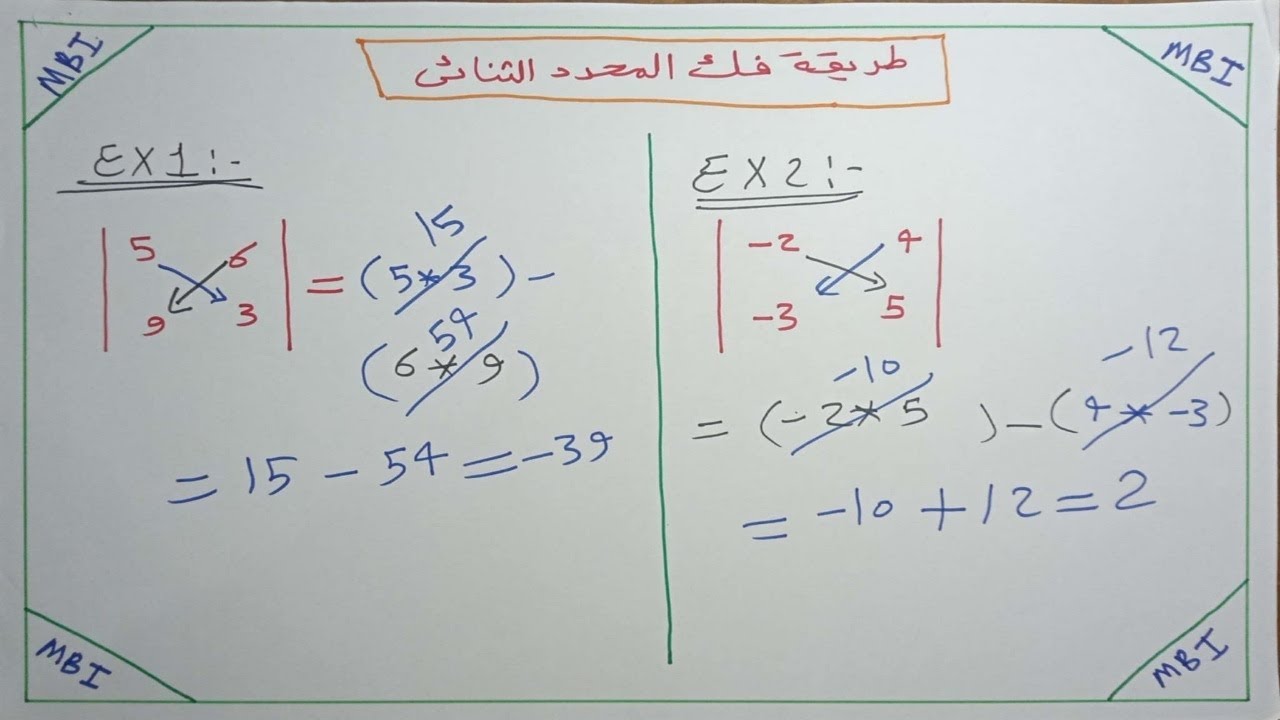 MBI
طريقة فك المحدد الثنائى
MBI
EX1:-
5 6
9 3
= (5*3) -
15
(6*9)
54
= 15 - 54 = -39
EX2:-
-2 4
-3 5
= (-2*5) - (4*-3)
-10 -12
= -10 + 12 = 2
MBI
MBI